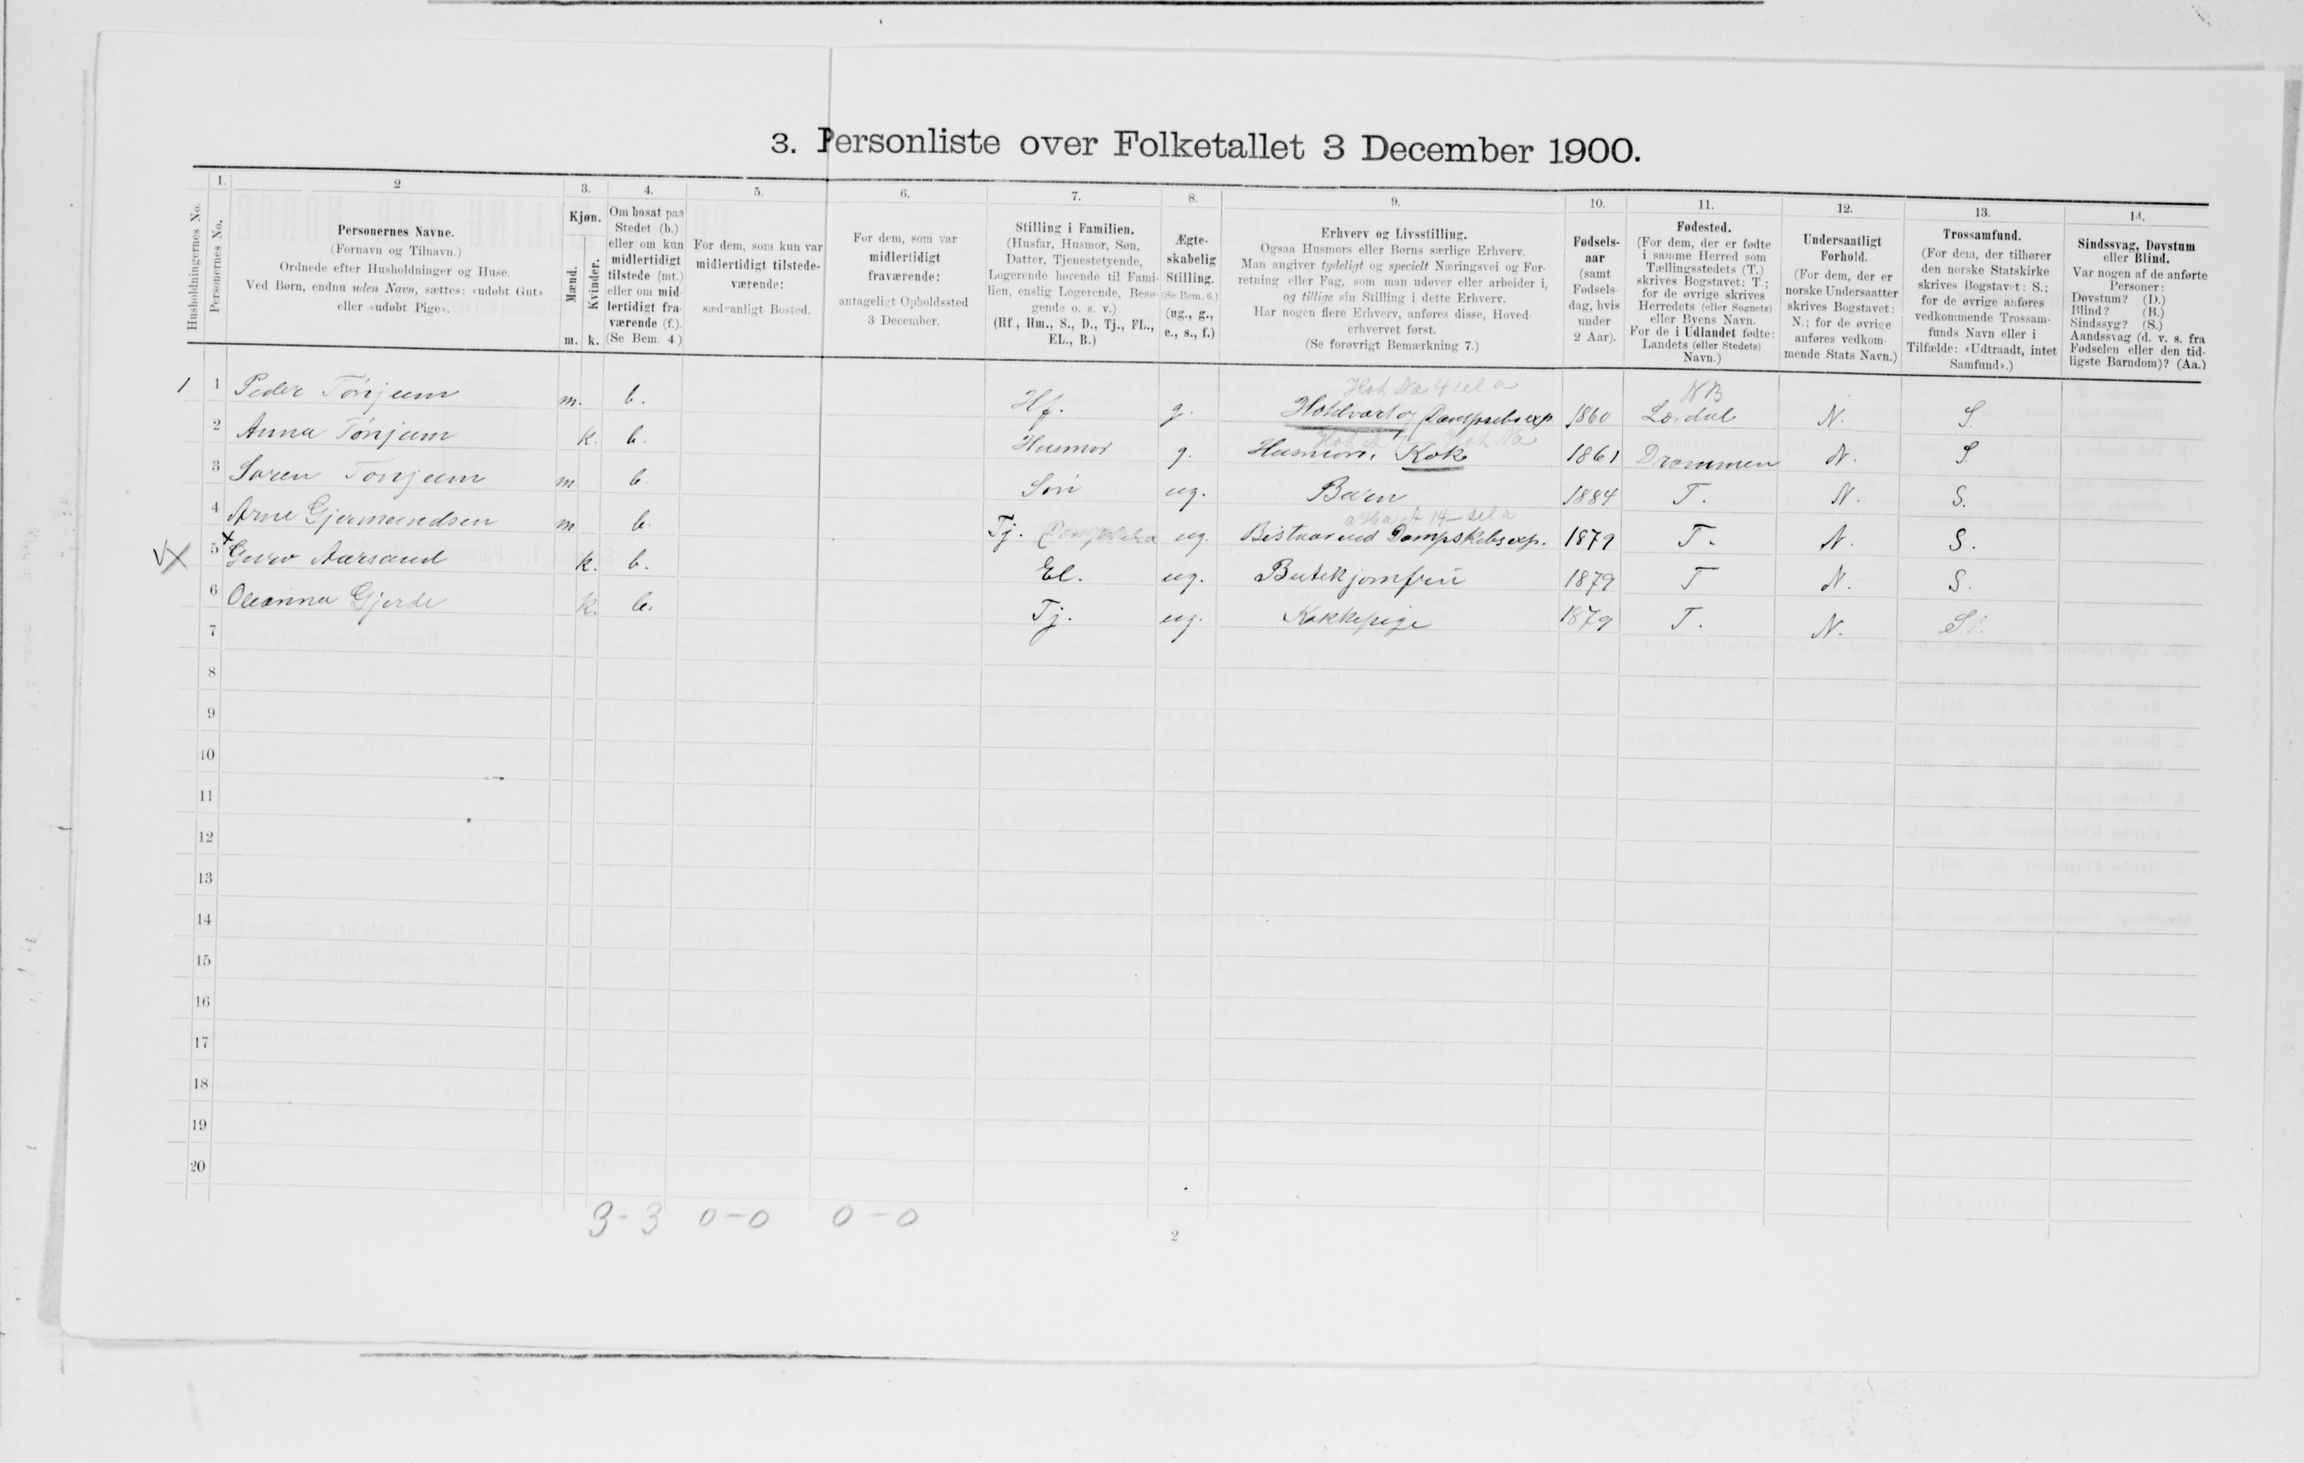 3. Personliste over Folketallet 3 December 1900.
1. 2. 3. 4. 5. 6. 7. 8. 9. 10. 11. 12. 13. 14.
Husholdningernes No.
Personernes No.
Personernes Navne.
(Fornavn og Tilnavn.)
Ordnede efter Husholdninger og Huse.
Ved Børn, endnu uden Navn, sættes: «udøbt Gut»
eller «udøbt Pige».
Kjøn.
Mænd.
Kvinder.
m. k.
Om bosat paa
Stedet (b.)
eller om kun
midlertidigt
tilstede (mt.)
eller om mid-
lertidigt fra-
værende (f.).
(Se Bem. 4)
For dem, som kun var
midlertidigt tilstede-
værende:
sædvanligt Bosted.
For dem, som var
midlertidigt
fraværende:
antageligt Opholdssted
3 December.
Stilling i Familien.
(Husfar, Husmor, Søn,
Datter, Tjenestetyende,
Logerende hørende til Fami-
lien, enslig Logerende, Besø-
gende o. s. v.)
(Hf., Hm., S., D., Tj., FL.,
EL., B.)
Ægte-
skabelig
Stilling.
(Se Bem. 6.)
(ug., g.,
e., s., f.)
Erhverv og Livsstilling.
Ogsaa Husmors eller Børns særlige Erhverv.
Man angiver tydeligt og specielt Næringsvei og For-
retning eller Fag, som man udøver eller arbeider i,
og tillige sin Stilling i dette Erhverv.
Har nogen flere Erhverv, anføres disse, Hoved-
erhvervet først.
(Se forøvrigt Bemærkning 7.)
Fødsels-
aar
(samt
Fødsels-
dag, hvis
under
2 Aar).
Fødested.
(For dem, der er fødte
i samme Herred som
Tællingsstedets (T.)
skrives Bogstavet: T.;
for de øvrige skrives
Herredets (eller Sognets)
eller Byens Navn.
For de i Udlandet fødte:
Landets (eller Stedets)
Navn.)
Undersaatligt
Forhold.
(For dem, der er
norske Undersaatter
skrives Bogstavet:
N.; for de øvrige
anføres vedkom-
mende Stats Navn.)
Trossamfund.
(For dem, der tilhører
den norske Statskirke
skrives Bogstavet: S.;
for de øvrige anføres
vedkommende Trossam-
funds Navn eller i
Tilfælde: «Udtraadt, intet
Samfund».)
Sindssvag, Døvstum
eller Blind.
Var nogen af de anførte
Personer:
Døvstum? (D.)
Blind? (B.)
Sindssyg? (S.)
Aandssvag (d. v. s. fra
Fødselen eller den tid-
ligste Barndom)? (Aa.)
NB
1 1 Peder Tönjum m. b. Hf. g. Hotelvært og Dampskibsexp. 1860 Lærdal N. S.
2 Anna Tönjum k. b. Husmor g. Husmor, Kok 1861 Drammen N. S.
3 Søren Tönjum m b. Sön ug. Barn 1884 T. N. S.
4 Arne Gjermundsen m b. Tj. ug. Bistaar ved Dampskibsexp. 1879 T. N. S.
5 Guro Aarsand k. b. El. ug. Butikjomfru 1879 T N. S.
6 Oleanna Gjerde k. b. Tj. ug. Kokkepige 1879 T. N. S.
7
8
9
10
11
12
13
14
15
16
17
18
19
20
3-3 0-0 0-0
2